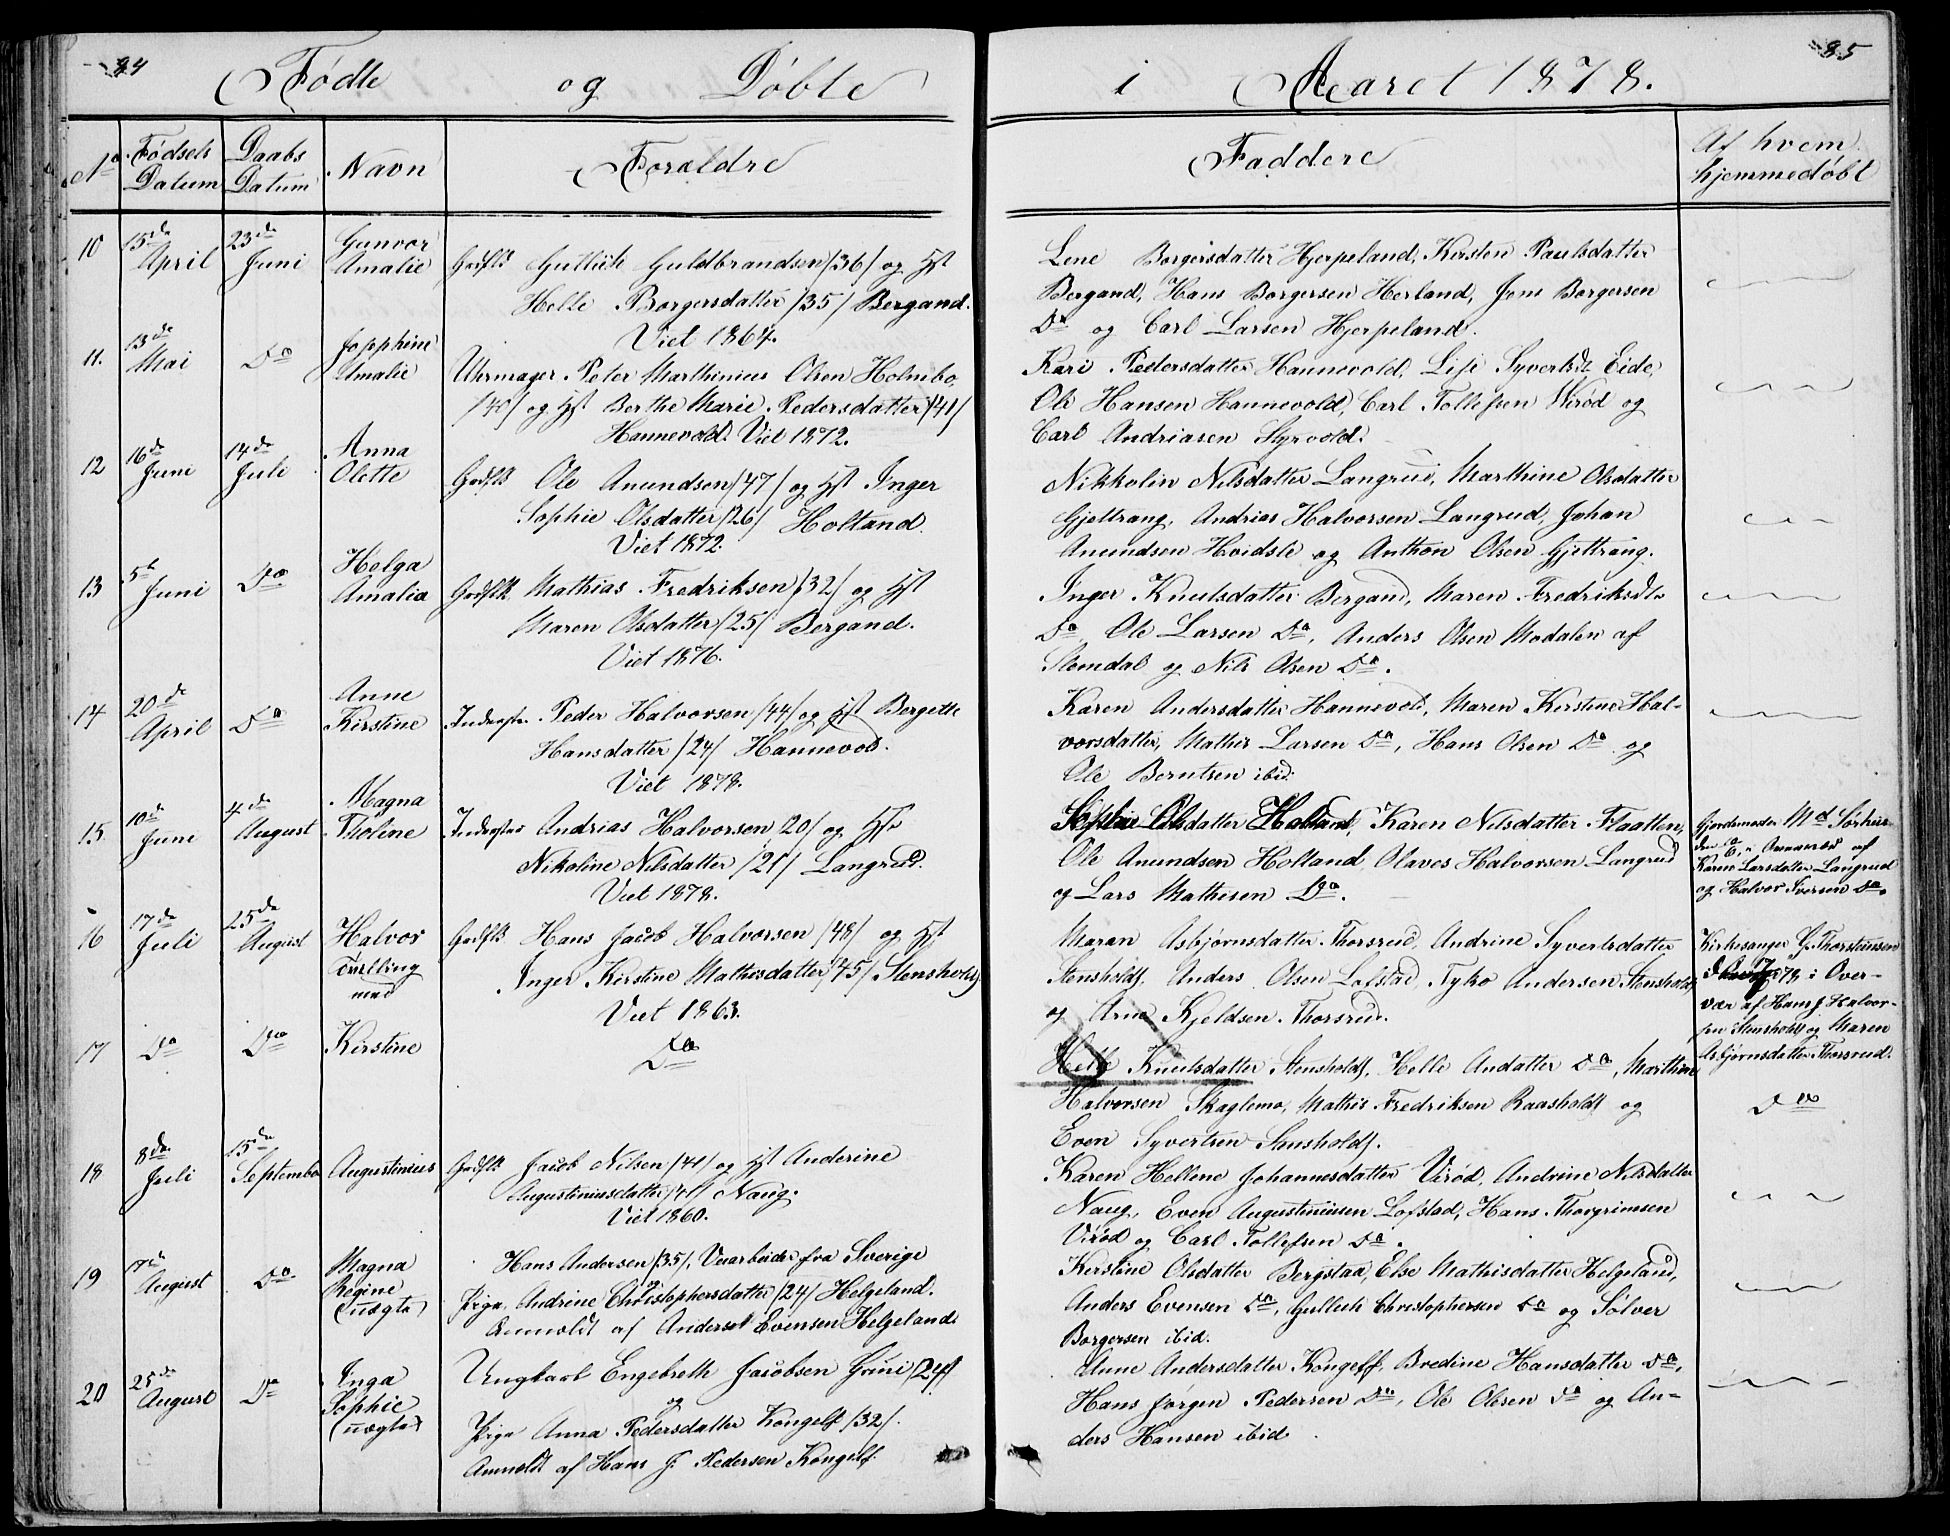 84
Fødte og Døbte
No
Fødsels Datum
Daabs Datum
Navn
Forældre
10
15de April
23de Juni
Gunvor Amalie
Gaardbr. Gullich Guldbrandsen /36/ og Hst
Helle Borgersdatter /35/ Bergand.
Viet 1864.
11.
13de Mai
Do
Josephine Amalie
Uhrmager Peter Marthinius Olsen Holmbo
/40/ og Hst Berthe Marie Pedersdatter /41/
Hannevold. Viet 1872.
12
16de Juni
14de Juli
Anna Olette
Gaardbr. Ole Anundsen /47/ og Hst Inger
Sophie Olsdatter /26/ Holtand.
Viet 1872.
13
5te Juni
Do
Helga Amalia
Gaardbr. Mathias Fredriksen /32/ og Hst
Maren Olsdatter /25/ Bergand.
Viet 1876.
14
20de April
Do
Anne Kirstine
Inderster Peder Halvorsen /44/ og Hst Bergette
Hansdatter /24/ Hannevold.
Viet 1878.
15
10de Juni
4de August
Magna Tholine
Inderster Andrias Halvorsen 20/ og Hst
Nikoline Nilsdatter /21/ Langrud.
Viet 1878.
16
17de Juli
25de August
Halvor
Tvilling
med
Gaardbr. Hans Jacob Halvorsen /48/ og Hst
Inger Kirstine Mathisdatter /45/ Stensholdt
Viet 1863.
17
Do
Do
Kirstine
Do
18
8de Juli
15de September
Augustinius
Gaardbr. Jacob Nilsen /41/ og Hst Anderine
Augustiniusdatter /41/ Naug.
Viet 1860.
19
August
Do
Magna Regine
(uægte)
Hans Andersen /35/, Veiarbeider fra Sverige
Pige Andrine Christophersdatter /24/ Helgeland.
Anmeldt af Anders Evensen Helgeland
20
25de August
Do
Inga Sophie
(uægte)
Ungkarl Engebreth Jacobsen Grini /24/
og
Pige Anna Pedersdatter Kongelf /32/.
Anmeldt af Hans J. Pedersen Kongelf.
85
i Aaret 1878.
Faddere
Af hvem hjemmedøbt
Lene Borgersdatter Hjerpeland, Kirsten Paulsdatter
Bergand, Hans Borgersen Herland, Jens Borgersen
Do og Carl Larsen Hjerpeland.
Kari Pedersdatter Hannevold, Lise Syvertsdt. Eide,
Ole Hansen Hannevold, Carl Tollefsen Wirød og
Carl Andriasen Styrvold.
Nikkolin Nilsdatter Langrud, Marthine Olsdatter
Gjettrang, Andrias Halvorsen Langrud, Johan
Anundsen Hvidste og Anthon Olsen Gjettrang.
Inger Knutsdatter Bergand, Maren Fredriksdtr
Do, Ole Larsen Do, Anders Olsen Modalen af
Slemdal og Nils Olsen Do.
Karen Andersdatter Hannevold, Maren Kirstine Hal-
vorsdatter, Mathis Larsen Do, Hans Olsen Do og
Ole Berntsen ibid.
Sophie Olsdatter Holtand, Karen Nilsdatter Flaatten,
Ole Anundsen Holtand, Olaves Halvorsen Langrud
og Lars Mathisen Do.
Gjordemoder Md Sørhus
Karen Larsdatter Langrud
og Halvor Iversen Do.
Maran Asbjørnsdatter Thorsrud, Andrine Syvertsdatter
Stensholdt, Anders Olsen Lofstad, Tyko Andersen Stensholdt
og Arne Kjeldsen Thorsrud.
Kirkesanger G. Thorstensen
78 i Over-
vær af Hans J. Halvor-
sen Stensholdt og Maren
Asbjørnsdatter Thorsrud.
Helle Knutsdatter Stensholdt, Helle Andatter Do, Marthin
Halvorsen Skaglemo, Mathis Fredriksen Raasholdt og
Even Syvertsen Stensholdt.
Do
Karen Hellene Johannesdatter Virød, Andrine Nilsdatter
Naug, Even Augustinusen Lofstad, Hans Thorgrimsen
Virød og Carl Tollefsen Do.
Kirstine Olsdatter Bergstad, Else Mathisdatter Helgeland,
Anders Evensen Do, Gullich Christophersen Do og Sølver
Borgersen ibid.
Anne Andersdatter Kongelf, Bredine Hansdatter Do,
Hans Jørgen Pedersen Do, Ole Olesen Do og An-
ders Hansen ibid.